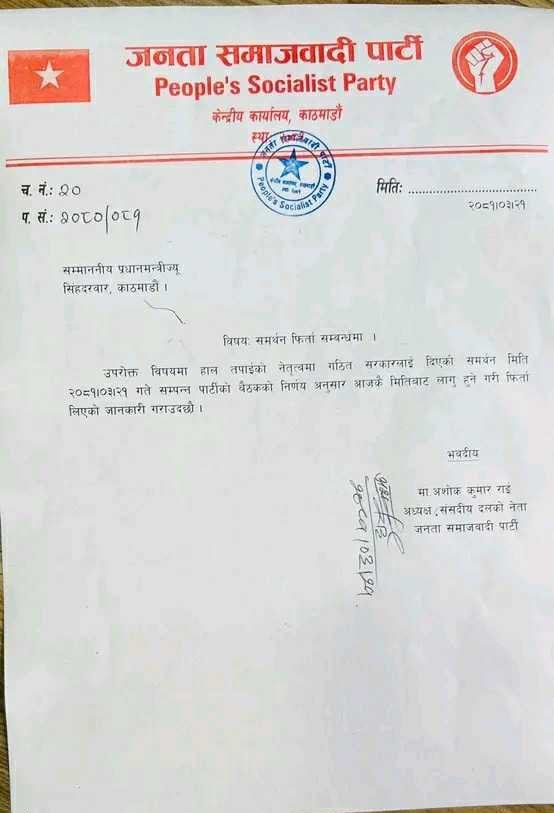 जनता समाजवादी पार्टी
People's Socialist Party
केन्द्रीय कार्यालय, काठमाडौं
स्था
People's Socialist Party
च. नं.: २०
मितिः ....................................
प. सं.: २०८०/०८१
२०८१।०३।२१
सम्माननीय प्रधानमन्त्रीज्यू
सिंहदरवार, काठमाडौं ।
विषय: समर्थन फिर्ता सम्बन्धमा ।
उपरोक्त विषयमा हाल तपाईको नेतृत्वमा गठित सरकारलाई दिएको समर्थन मिति
२०८१।०३।२१ गते सम्पन्न पार्टीको बैठकको निर्णय अनुसार आजकै मितिबाट लागु हुने गरी फिर्ता
लिएको जानकारी गराउदछौ ।
भवदीय
मा.अशोक कुमार राई
अध्यक्ष, संसदीय दलको नेता
जनता समाजवादी पार्टी
२०८१।०३।२१